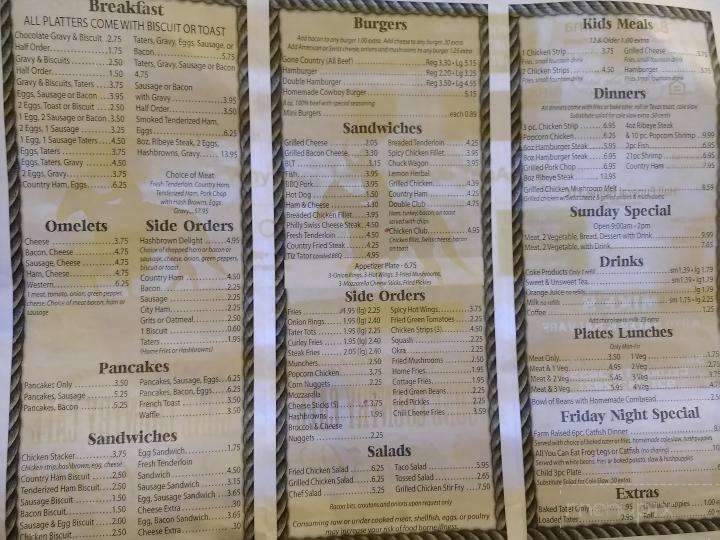 Breakfast
ALL PLATTERS COME WITH BISCUIT OR TOAST
Chocolate Gravy & Biscuit .2.75
Half Order 1.75
Gravy & Biscuits 2.50
Half Order 1.50
Gravy & Biscuits, Taters 3.75
Eggs, Sausage or Bacon 3.95
2 Eggs, Toast or Biscuit 2.50
1 Egg, 2 Sausage or Bacon 3.50
2 Eggs, 1 Sausage 3.25
1 Egg, 1 Sausage Taters 4.50
Eggs, Taters 3.75
Eggs, Taters, Gravy 4.50
2 Eggs, Gravy 3.75
Country Ham, Eggs 6.25
Taters, Gravy, Eggs, Sausage, or
Bacon 5.75
Taters, Gravy, Sausage or Bacon
4.75
Sausage or Bacon
with Gravy 3.95
Half Order 3.50
Smoked Tenderized Ham,
Eggs 6.25
8oz. Ribeye Steak, 2 Eggs,
Hashbrowns, Gravy 13.95
Choice of Meat
Fresh Tenderloin, Country Ham,
Tenderized Ham, Pork Chop
with Hash Browns, Eggs
Gravy
Omelets
Cheese 3.75
Bacon, Cheese 4.75
Sausage, Cheese 4.75
Ham, Cheese 4.75
Western 6.25
1 meat, tomato, onion, green pepper,
cheese. Choice of meat bacon, ham or
sausage
Side Orders
Hashbrown Delight 4.95
Choice of chopped ham or bacon or
sausage, cheese, onion, green peppers,
biscuit or toast
Country Ham 4.50
Bacon 2.25
Sausage 2.25
City Ham 2.25
Grits or Oatmeal 2.50
1 Biscuit 0.60
Taters 1.95
(Home Fries or Hashbrowns)
Pancakes
Pancakes Only 3.50
Pancakes, Sausage 5.25
Pancakes, Bacon 5.25
Pancakes, Sausage, Eggs 6.25
Pancakes, Bacon, Eggs 6.25
French Toast 3.50
Waffle 3.50
Sandwiches
Chicken Stacker 3.75
Chicken strip, hashbrown, egg, cheese
Country Ham Biscuit 2.50
Tenderized Ham Biscuit 2.50
Sausage Biscuit 1.50
Bacon Biscuit 1.50
Sausage & Egg Biscuit 2.00
Chicken Biscuit 2.50
Egg Sandwich 1.75
Fresh Tenderloin
Sandwich 4.50
Sausage Sandwich 3.15
Egg, Sausage Sandwich 3.65
Cheese Extra .30
Egg, Bacon Sandwich 3.65
Cheese Extra .30
Burgers
Add bacon to any burger 1.00 extra. Add cheese to any burger .30 extra
Add American or Swiss cheese, onions and mushrooms to any burger 1.25 extra
Gone Country (All Beef) Reg 3.30 - Lg 5.15
Hamburger Reg 2.20 - Lg 3.25
Double Hamburger Reg 3.50 - Lg 4.95
Homemade Cowboy Burger 5.15
8 oz. 100% beef with special seasoning
Mini Burgers each 0.89
Sandwiches
Grilled Cheese 2.05
Grilled Bacon Cheese 3.30
BLT 3.15
Fish 3.95
BBQ Pork 3.95
Hot Dog 1.50
Ham & Cheese 3.30
Breaded Chicken Fillet 3.95
Philly Swiss Cheese Steak 4.50
Fresh Tenderloin 4.50
Country Fried Steak 4.25
Tiz Tator 4.95
Breaded Tenderloin 4.25
Spicy Chicken Fillet 3.95
Chuck Wagon 3.95
Lemon Herbal
Grilled Chicken 4.39
Country Ham 4.25
Double Club 4.75
Ham, turkey, bacon, on toast
served with chips
Chicken Club 4.95
Chicken fillet, Swiss cheese, bacon
on toast
Appetizer Plate - 6.75
3-Onion Rings, 3-Hot Wings, 3-Fried Mushrooms,
3-Mozzarella Cheese Sticks, Fried Pickles
Side Orders
Fries 1.95 (lg) 2.25
Onion Rings 1.95 (lg) 2.40
Tater Tots 1.95 (lg) 2.25
Curley Fries 1.95 (lg) 2.40
Steak Fries 2.05 (lg) 2.40
Munchers 2.50
Popcorn Chicken 3.75
Corn Nuggets 2.25
Mozzarella
Cheese Sticks (5) 3.75
Hashbrowns 1.95
Broccoli & Cheese
Nuggets 2.25
Spicy Hot Wings 3.75
Fried Green Tomatoes 2.25
Chicken Strips (3) 4.50
Squash 2.25
Okra 2.25
Fried Mushrooms 2.50
Home Fries 1.95
Cottage Fries 1.95
Fried Green Beans 2.25
Fried Pickles 2.25
Chili Cheese Fries 3.59
Salads
Fried Chicken Salad 6.25
Grilled Chicken Salad 6.25
Chef Salad 5.25
Taco Salad 5.95
Tossed Salad 2.65
Grilled Chicken Stir Fry 7.50
Bacon bits, croutons and onions upon request only
Consuming raw or under cooked meat, shellfish, eggs, or poultry
may increase your risk of food borne illness.
Kids Meals
12 & Under 1.00 extra
1 Chicken Strip 3.75
Fries, small fountain drink
2 Chicken Strips 4.50
Fries, small fountain drink
Grilled Cheese 3.75
Fries, small fountain drink
Hamburger 3.75
Fries, small fountain drink
Dinners
All dinners come with fries or baked tater, roll or Texas toast, cole slaw
Substitute salad for cole slaw extra .50 cents
3 pc. Chicken Strip 6.95
Popcorn Chicken 6.25
8oz Hamburger Steak 5.95
8oz Hamburger Steak 6.95
Grilled Pork Chop 6.95
8oz Ribeye Steak 13.95
4oz Ribeye Steak
& 10 pc. Popcorn Shrimp 9.99
2pc Fish 6.95
21pc Shrimp 6.95
Country Ham 7.95
Grilled Chicken Mushroom Melt 8.59
Grilled chicken w/Swiss cheese & grilled onions & mushrooms
Sunday Special
Open 9:00am - 2pm
Meat, 2 Vegetable, Bread, Dessert with Drink 9.99
Meat, 2 Vegetable, with Drink 7.65
Drinks
Coke Products Only 1 refill sm 1.39 - lg 1.79
Sweet & Unsweet Tea sm 1.39 - lg 1.79
Orange Juice no refills
Milk no refills sm 1.75 - lg 2.25
Coffee 1.25
Add chocolate to milk .25 extra
Plates Lunches
Only Mon-Fri
Meat Only 3.50
Meat & 1 Veg 4.95
Meat & 2 Veg 5.45
Meat & 3 Veg 5.95
1 Veg 1.75
2 Veg 2.75
3 Veg
4 Veg
Bowl of Beans with Homemade Cornbread 2.50
Friday Night Special
Farm Raised 6pc. Catfish Dinner
Served with choice of baked tater or fries, homemade cole slaw, hushpuppies
All You Can Eat Frog Legs or Catfish (no sharing)
Served with white beans, fries or baked potato, slaw & hushpuppies
Child 3pc Plate
Substitute Salad for Cole Slaw .50 extra
Extras
Baked Tater Only 1.95
Loaded Tater 2.95
Hushpuppies 1.00
Roll .60